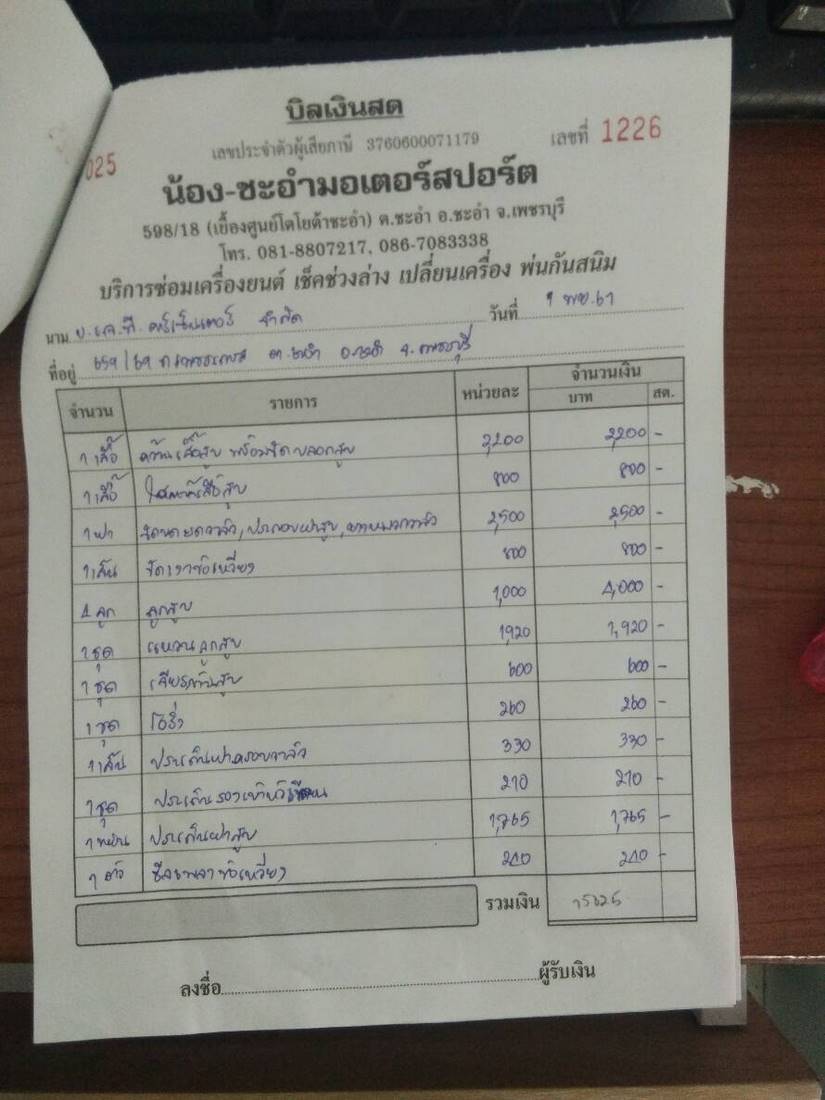 บิลเงินสด
025
เลขประจำตัวผู้เสียภาษี 3760600071179 เลขที่ 1226
น้อง-ชะอำมอเตอร์สปอร์ต
598/18 (เยื้องศูนย์โตโยต้าชะอำ) ต.ชะอำ อ.ชะอำ จ.เพชรบุรี
โทร. 081-8807217, 086-7083338
บริการซ่อมเครื่องยนต์ เช็คช่วงล่าง เปลี่ยนเครื่อง พ่นกันสนิม
นาม จำกัด วันที่ 9 พย. 61
ที่อยู่ 659/69 ถ.เพชรเกษม ต.ชะอำ อ.ชะอำ จ.เพชรบุรี
จำนวน รายการ หน่วยละ จำนวนเงิน
บาท สต.
1 เสื้อ คว้านเสื้อสูบ พร้อมขัดปลอกสูบ 2,200 2,200 -
1 เสื้อ เสื้อสูบ 800 800 -
1 ฝา บดวาล์ว, ประกอบฝาสูบ, 2,500 2,500 -
1 เส้น ขัดเงาข้อเหวี่ยง 800 800 -
4 ลูก ลูกสูบ 1,000 4,000 -
1 ชุด แหวนลูกสูบ 1,920 1,920 -
1 ชุด 600 600 -
1 ชุด 260 260 -
1 เส้น ประเก็นฝาครอบวาล์ว 330 330 -
1 ชุด ประเก็นรองเบ้าหัวเทียน 210 210 -
1 แผ่น ประเก็นฝาสูบ 1,765 1,765 -
1 ตัว ซีลเพลาข้อเหวี่ยง 240 240 -
รวมเงิน 15625
ลงชื่อ ผู้รับเงิน